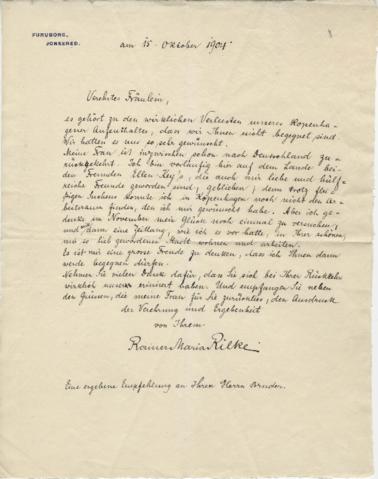 FURUBORG,
JONSERED.
am 15. Oktober 1904.
Verehrtes Fräulein,
es gehört zu den wirklichen Verlusten unseres Kopenha-
gener Aufenthaltes, dass wir Ihnen nicht begegnet sind.
Wir hatten es uns so sehr gewünscht.
Meine Frau ist inzwischen schon nach Deutschland zu-
rückgekehrt. Ich bin vorläufig hier auf dem Lande bei
den Freunden Ellen Key's, die auch mir liebe und hülf-
reiche Freunde geworden sind, geblieben; denn trotz flei-
ßigen Suchens konnte ich in Kopenhagen noch nicht den Ar-
beitsraum finden, den ich mir gewünscht habe. Aber ich ge-
denke im November mein Glück noch einmal zu versuchen,
und dann eine Zeitlang, wie ich es vor hatte, in Ihrer schönen,
mir so lieb gewordenen Stadt wohnen und arbeiten.
Es ist mir eine grosse Freude zu denken, dass ich Ihnen dann
werde begegnen dürfen.
Nehmen Sie vielen Dank dafür, dass Sie sich bei Ihrer Rückkehr
wirklich unser erinnert haben. Und empfangen Sie neben
den Grüssen, die meine Frau für Sie zurückliess, den Ausdruck
der Verehrung und Ergebenheit
von Ihrem
Rainer Maria Rilke.
Eine ergebene Empfehlung an Ihren Herrn Bruder.